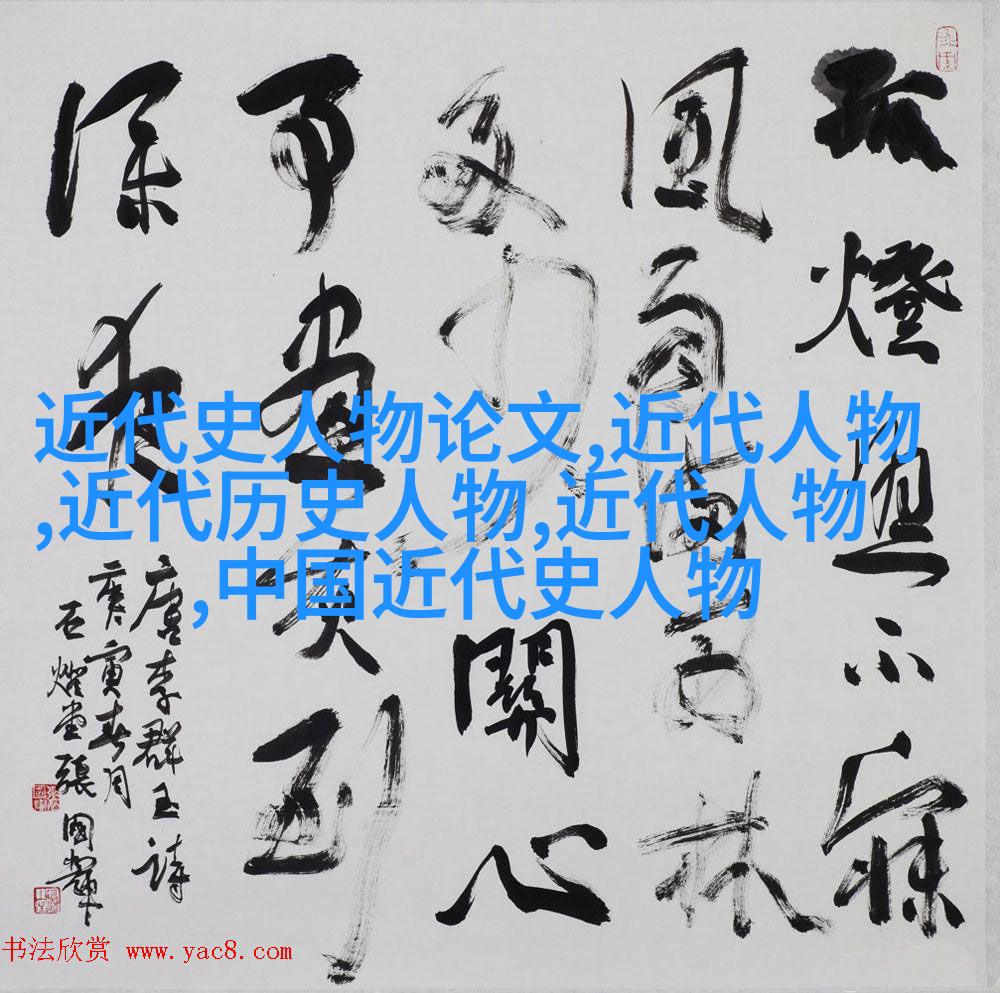 孤燈照不寐
風雨滿西林
多少關心
事書灰到
深夜
唐李群玉詩
庚寅春月
張國
近代史人物论文,近代人物
,近代历史人物,近代人物
,中国近代史人物
书法欣赏 www.yac8.com